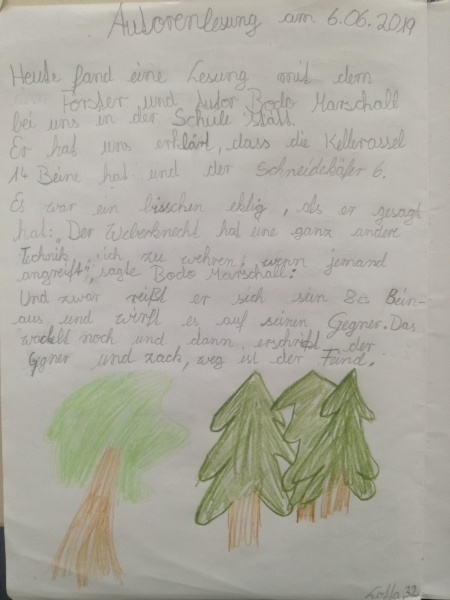 Autorenlesung am 6.06.2019
Heute fand eine Lesung mit dem
Förster und Autor Bodo Marschall
bei uns in der Schule statt.
Er hat uns erklärt, dass die Kellerassel
14 Beine hat und der Schneidekäfer 6.
Es war ein bisschen eklig, als er gesagt
hat: „Der Weberknecht hat eine ganz andere
Technik sich zu wehren, wenn jemand
angreift", sagte Bodo Marschall:
Und zwar reißt er sich sein 8es Bein
aus und wirft es auf seinen Gegner. Das
wackelt noch und dann erschrickt der
Ggner und zack, weg ist der Feind.
32